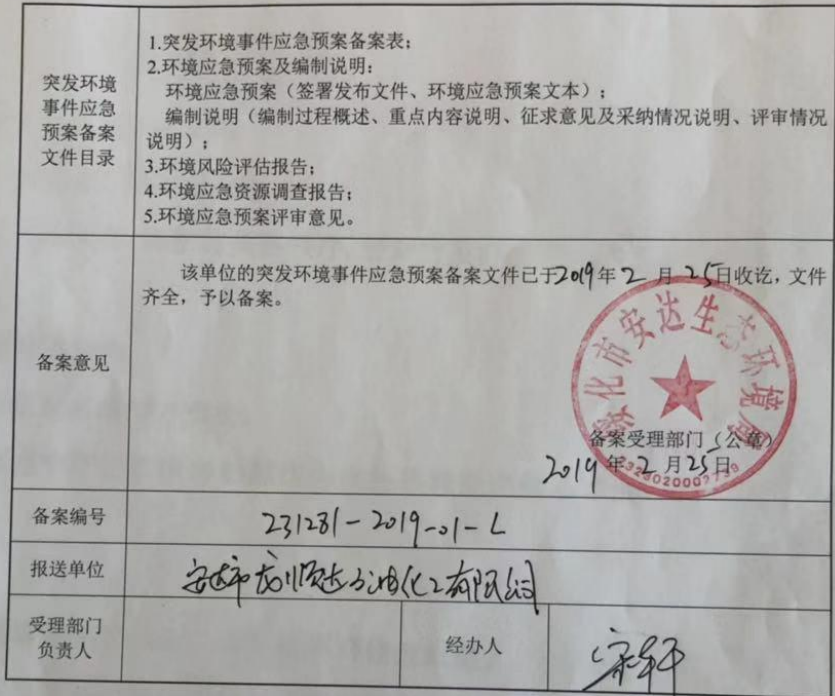 突发环境
事件应急
预案备案
文件目录
1.突发环境事件应急预案备案表；
2.环境应急预案及编制说明：
环境应急预案（签署发布文件、环境应急预案文本）；
编制说明（编制过程概述、重点内容说明、征求意见及采纳情况说明、评审情况
说明）；
3.环境风险评估报告；
4.环境应急资源调查报告；
5.环境应急预案评审意见。
备案意见
该单位的突发环境事件应急预案备案文件已于2019年2月25日收讫，文件
齐全，予以备案。
绥化市安达生态环境局
备案受理部门（公章）
2019年2月25日
备案编号
231281-2019-01-L
报送单位
安达市龙顺达石油化工有限公司
受理部门
负责人
经办人